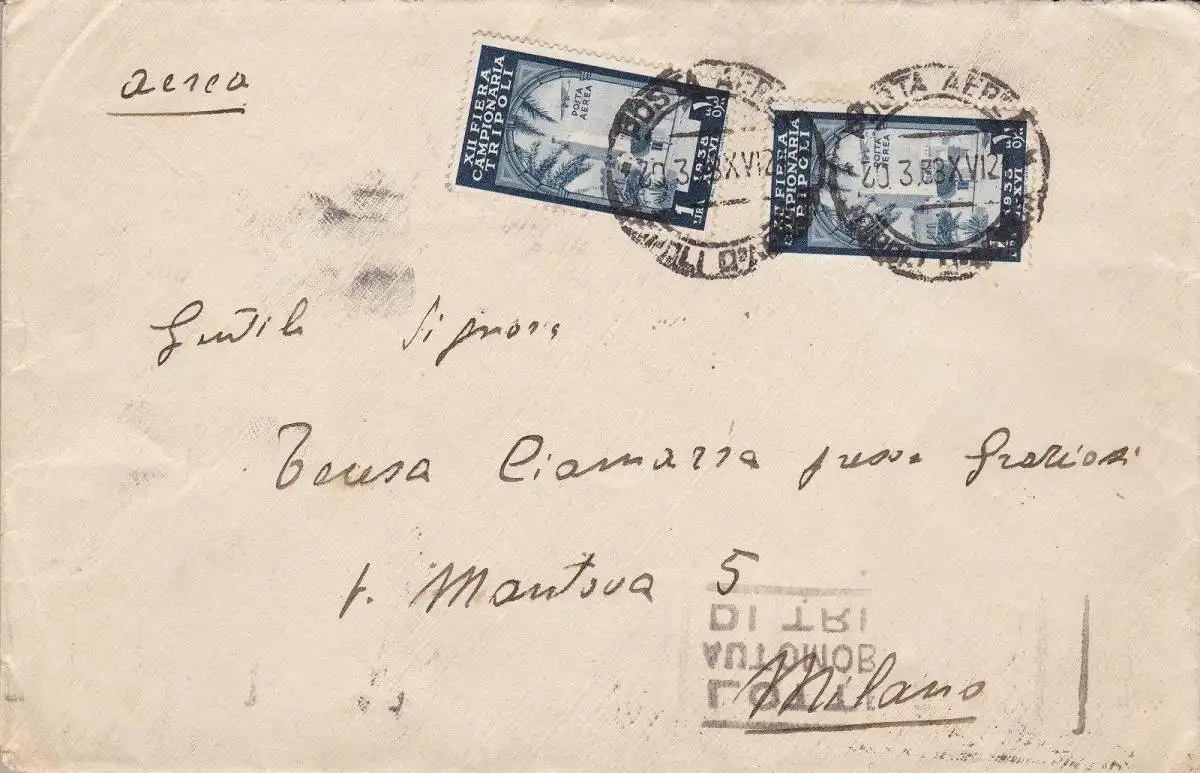 aerea
XII FIERA
CAMPIONARIA
TRIPOLI
POSTA
AEREA
1938
A·XVI
1
LIRA
XII FIERA
CAMPIONARIA
TRIPOLI
POSTA
AEREA
1938
A·XVI
POSTA AEREA
20 3 38 XVI 2
POSTA AEREA
20 3.38 XVI 2
Gentile Signora
Teresa Ciamarra presso Graziosi
v. Mantova 5
Milano
LOTTE
AUTOMOB
DI TRI